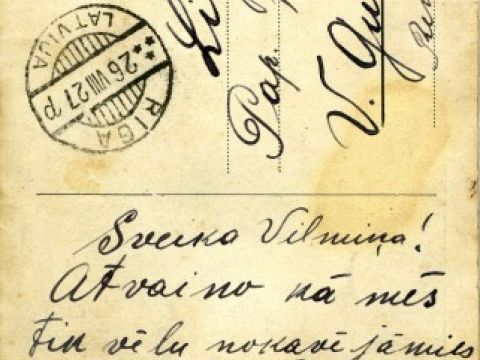 LATVIJA
* 26 VIII 27 P *
RIGA
Pap.
V. Gu
Sveika Vilmiņa!
Atvaino kā mēs
tik vēlu nokavējāmies